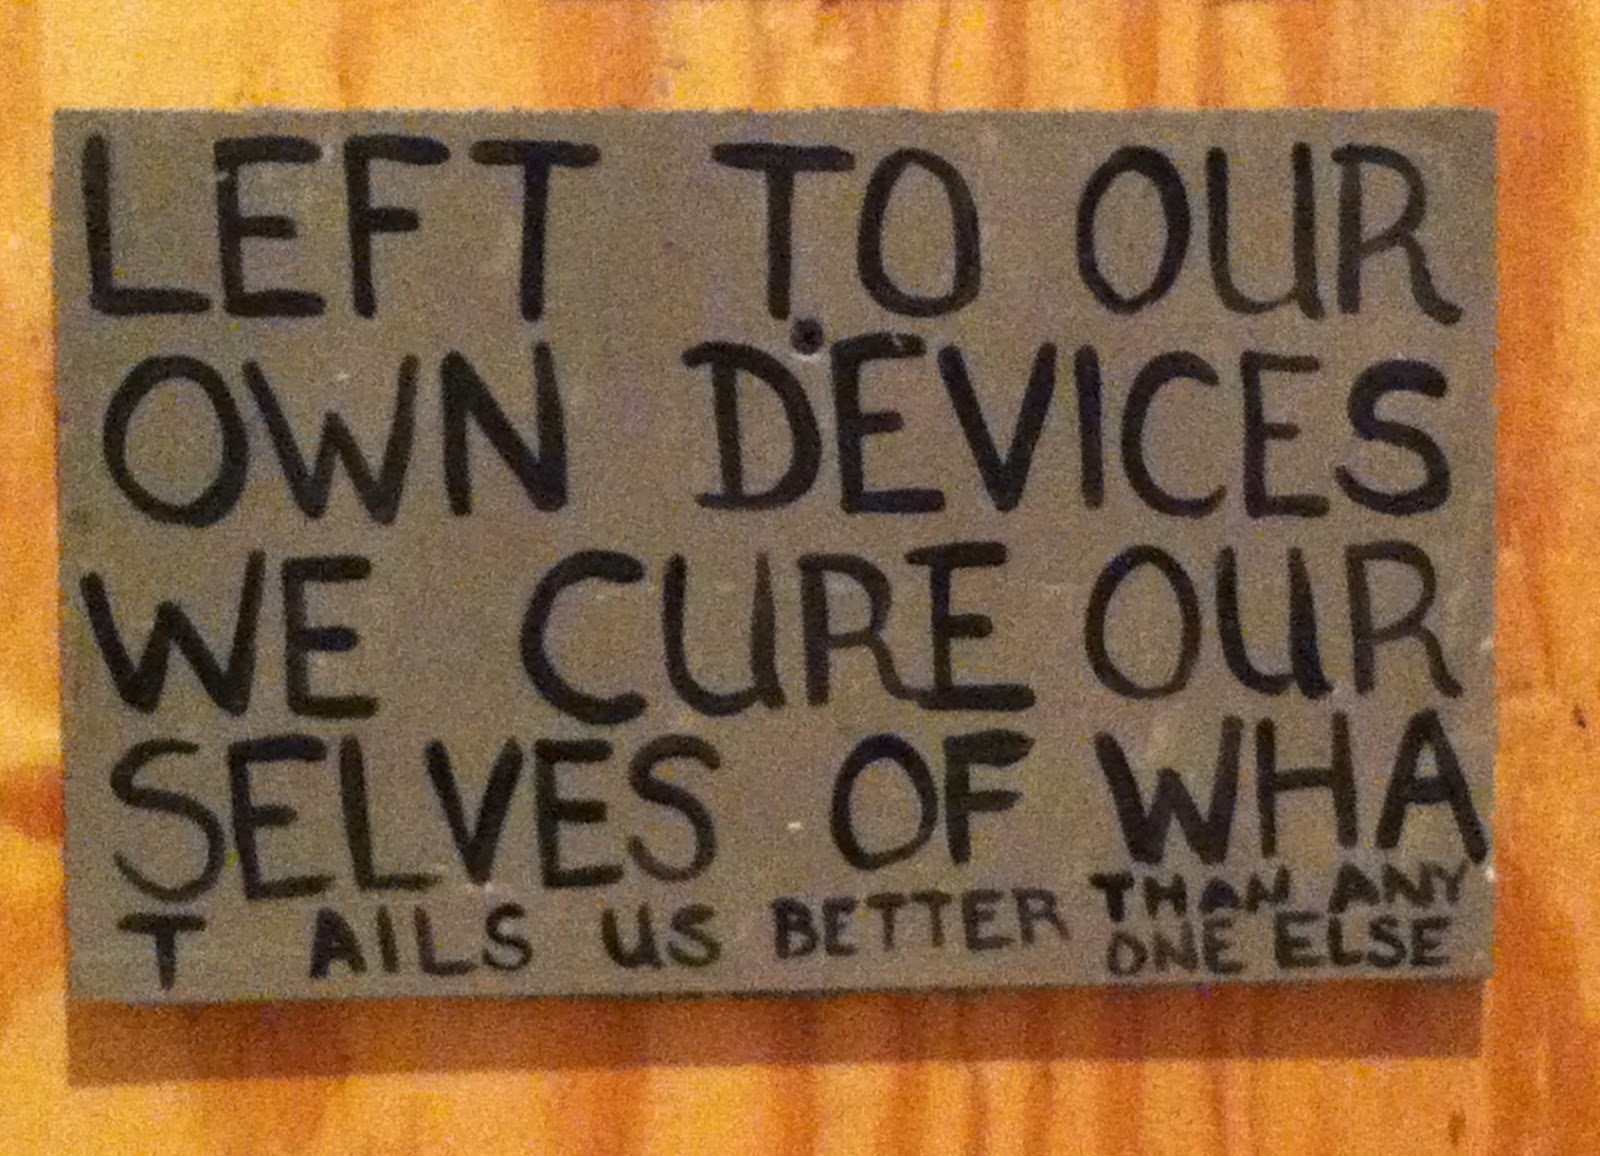 LEFT TO OUR
OWN DEVICES
WE CURE OUR
SELVES OF WHA
T AILS US BETTER THAN ANY
ONE ELSE